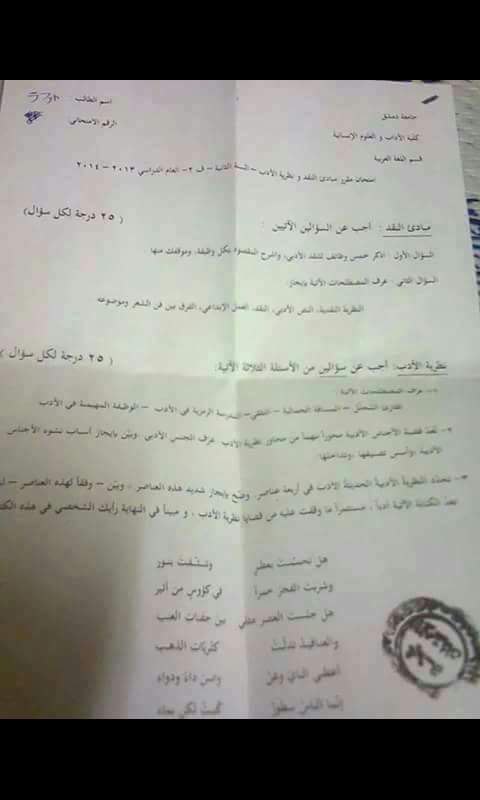 اسم الطالب :
الرقم الامتحاني
جامعة دمشق
كلية الآداب و العلوم الإنسانية
قسم اللغة العربية
امتحان مقرر مبادئ النقد و نظرية الأدب – السنة الثانية – ف ٢ – العام الدراسي ٢٠١٣ – ٢٠١٤
مبادئ النقد : أجب عن السؤالين الآتيين : ( ٢٥ درجة لكل سؤال )
السؤال الأول : اذكر خمس وظائف للنقد الأدبي، واشرح المقصود بكل وظيفة، وموقفك منها
السؤال الثاني : عرف المصطلحات الآتية بإيجاز:
النظرية النقدية، النص الأدبي، النقد، العمل الإبداعي، الفرق بين فن الشعر وموضوعه
نظرية الأدب: أجب عن سؤالين من الأسئلة الثلاثة الآتية: ( ٢٥ درجة لكل سؤال )
١- عرف المصطلحات الآتية :
القارئ المتخيّل – المسافة الجمالية – التلقي – المدرسة الرمزية في الأدب – الوظيفة المهيمنة في الأدب
٢- تعد قضية الأجناس الأدبية محوراً مهماً من محاور نظرية الأدب. عرف الجنس الأدبي. وبيّن بإيجاز أسباب نشوء الأجناس
الأدبية وأسس تصنيفها وتداخلها.
٣- تتحدّد النظرية الأدبية الحديثة الأدب في أربعة عناصر. وضّح بإيجاز شديد هذه العناصر ، وبيّن – وفقاً لهذه العناصر –
تعدّ الكتابة الآتية أدباً ، مستثمراً ما وقفت عليه من قضايا نظرية الأدب ، و مبيناً في النهاية رأيك الشخصي في هذه
هل تحممت بعطر وتنشفت بنور
وشربت الفجر خمراً في كؤوس من أثير
هل جلست العصر مثلي بين جفنات العنب
والعناقيد تدلت كثريات الذهب
أعطني الناي وغنّ وانس داء ودواء
إنما الناس سطور كتبت لكن بماء